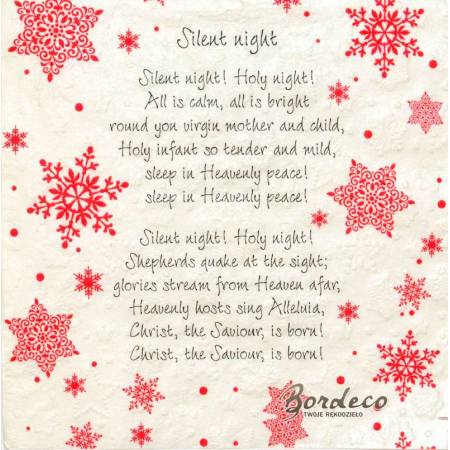 Silent night
Silent night! Holy night!
All is calm, all is bright
round you virgin mother and child,
Holy infant so tender and mild,
sleep in Heavenly peace!
sleep in Heavenly peace!
Silent night! Holy night!
Shepherds quake at the sight;
glories stream from Heaven afar,
Heavenly hosts sing Alleluia,
Christ, the Saviour, is born!
Christ, the Saviour, is born!
Bordeco
TWOJE RĘKODZIEŁO